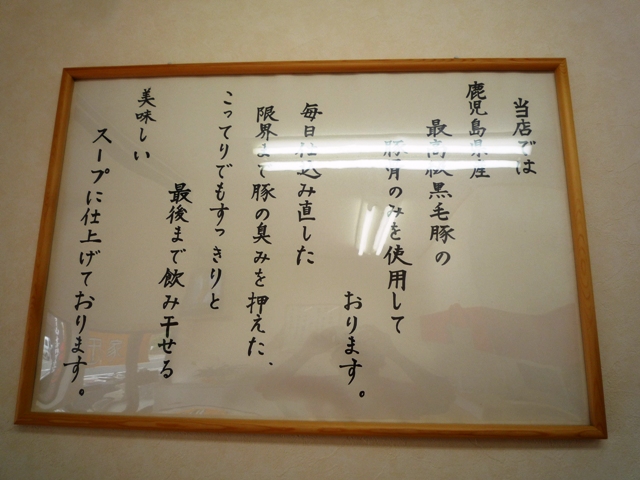 当店では
鹿児島県産
最高級黒毛豚の
豚骨のみを使用して
おります。
毎日仕込み直した
限界まで豚の臭みを押えた、
こってりでもすっきりと
最後まで飲み干せる
美味しい
スープに仕上げております。